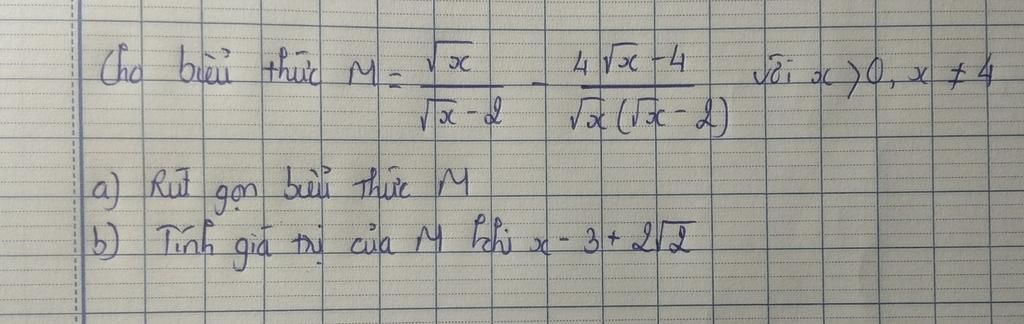 Cho biểu thức M = \frac{\sqrt{x}}{\sqrt{x} - 2} - \frac{4\sqrt{x} - 4}{\sqrt{x}(\sqrt{x} - 2)} với x > 0, x ≠ 4
a) Rút gọn biểu thức M
b) Tính giá trị của M khi x - 3 + 2\sqrt{2}